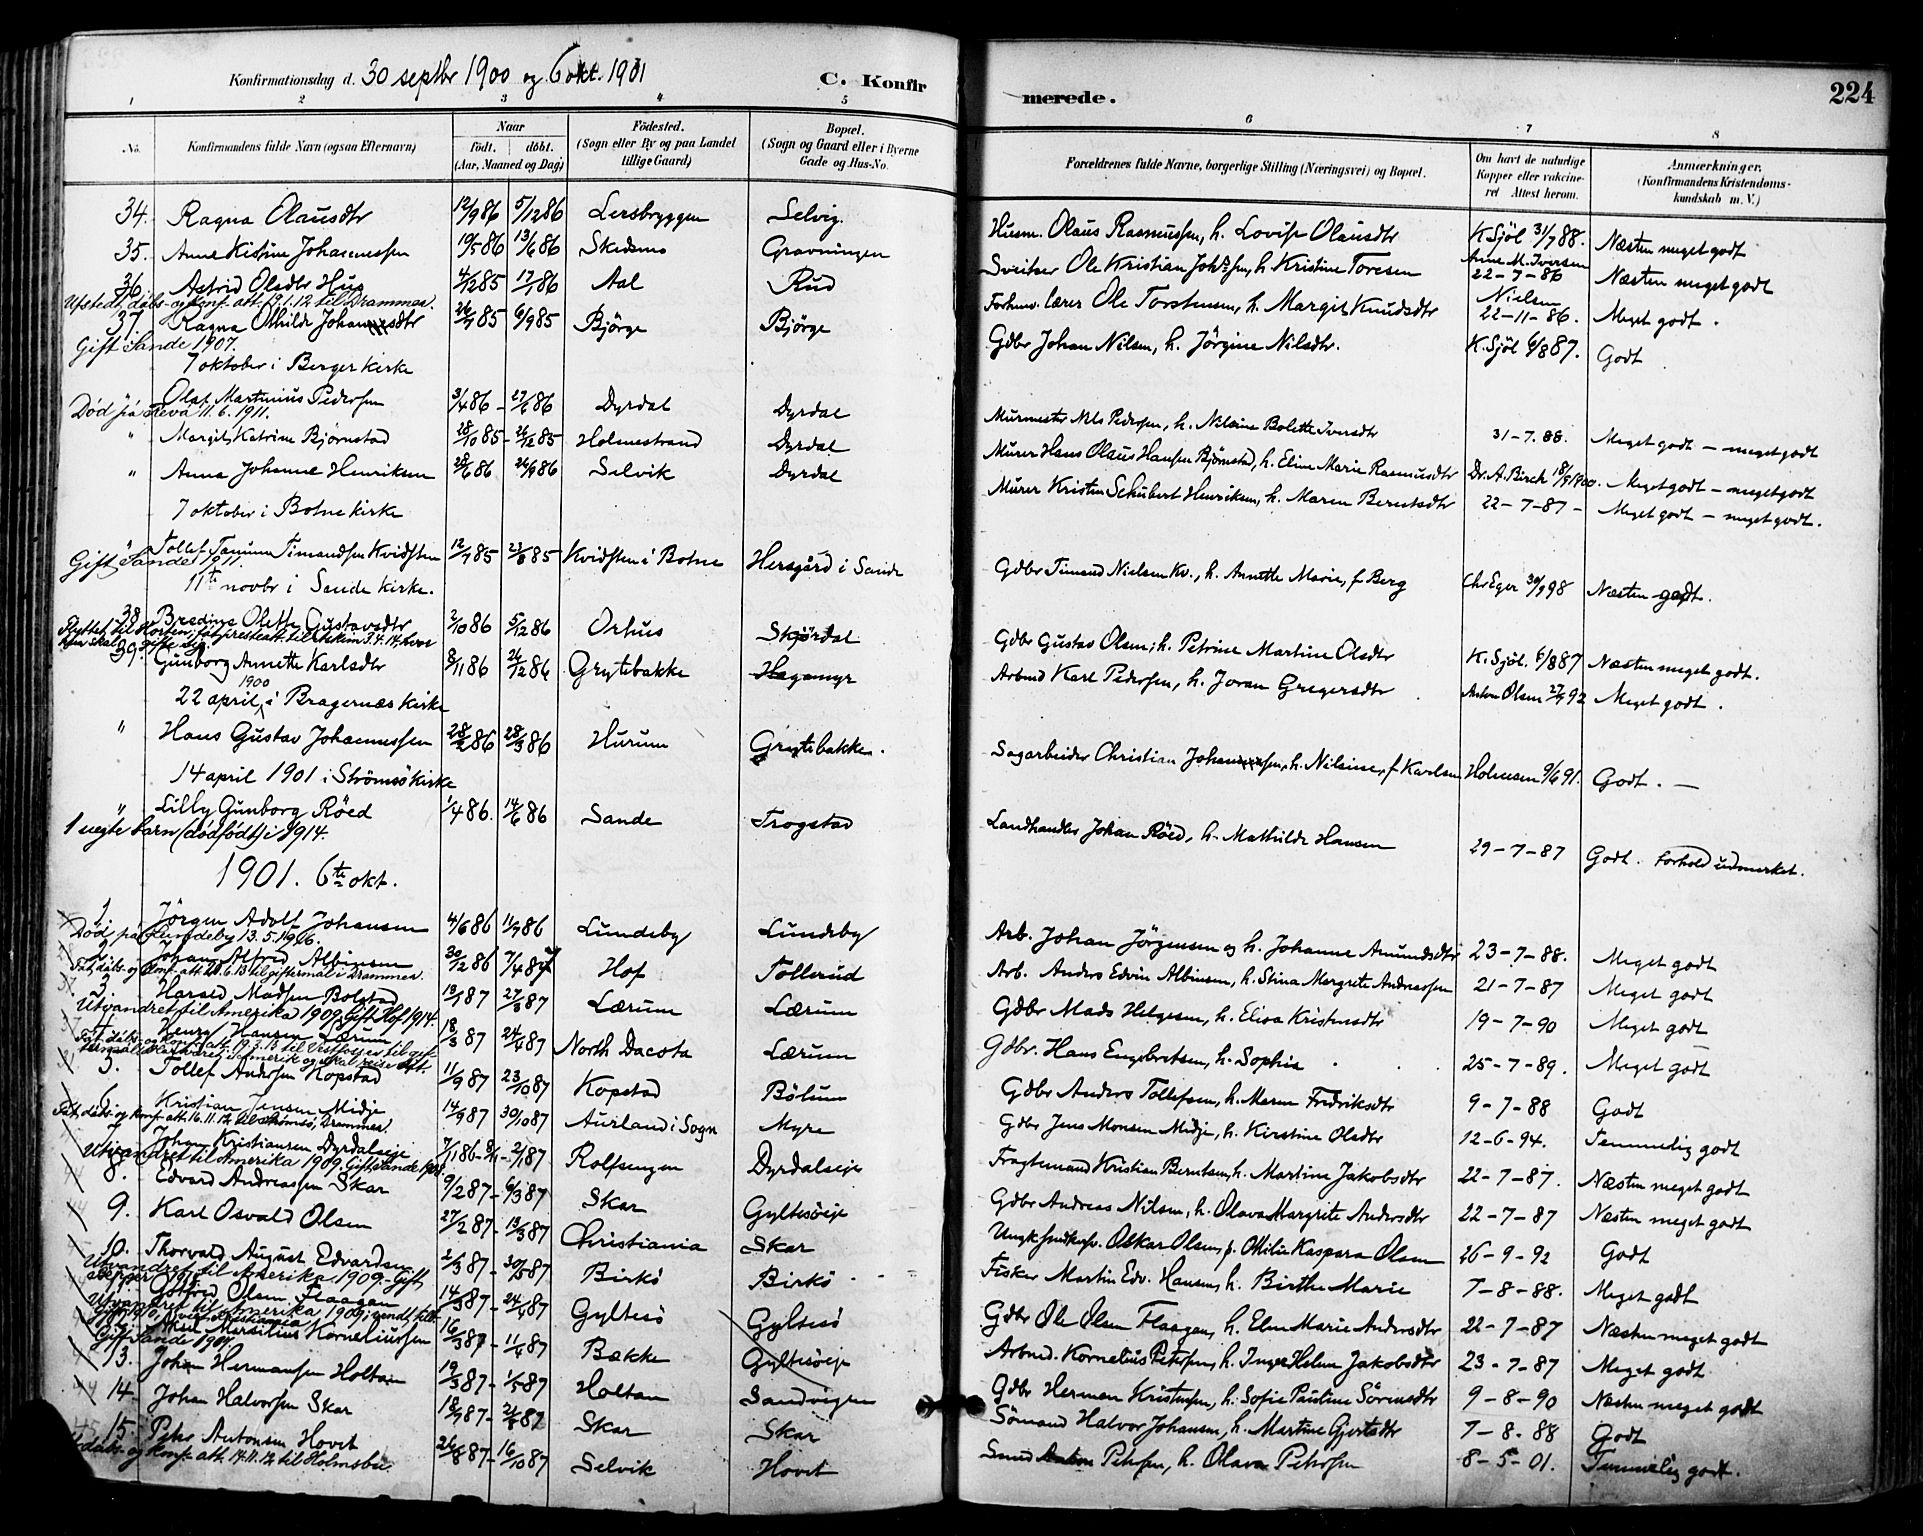 Konfirmationsdag d. 30 septbr 1900 og 6 okt. 1901
C. Konfir
merede.
224
1 2 3 4 5
6 7 8
No.
Konfirmandens fulde Navn (ogsaa Efternavn)
Naar
født. døbt.
(Aar, Maaned og Dag)
Födested.
(Sogn eller By og paa Landet
tillige Gaard)
Bopæl.
(Sogn og Gaard eller i Byerne
Gade og Hus-No.
Forældrenes fulde Navne, borgerlige Stilling (Næringsvei) og Bopæl.
Om havt de naturlige
Kopper eller vakcine-
ret Attest herom.
Anmærkninger.
(Konfirmandens Kristendoms-
kundskab m. V.)
34. Ragna Olausdtr 12/9 86 5/12 86 Lersbryggen Selvig. Husm. Olaus Rasmussen, h. Lovise Olausdtr K Sjöl 31/7 88. Næsten meget godt
35. Anne Kistine Johannessen 19/5 86 13/6 86 Skedsmo Gravningen Sveitser Ole Kristian Johs sen, h Kristine Toresen Anne M. Iversen 22-7-86 Næsten meget godt
36. Astrid Olsdtr Hus 4/12 85 17/ 86 Aal Rud Forhenv. lærer Ole Torstensen, h. Margit Knudsdtr Nielsen 22-11-86. Meget godt.
Utstedt dåbs- og konf. att. 19.1.12 til Drammen.
37. Ragna Othilde Johannesdtr 26/7 85 6/9 85 Björge Björge Gdbr Johan Nilsen, h. Jörgine Nilsdtr. K. Sjöl 6/8 87. Godt
Gift i Sande 1907.
7 oktober i Berger kirke
" Olaf Martinius Pedersen 3/4 86 - 27/6 86 Dyrdal Dyrdal Murmester Nils Pedersen, h. Nilsine Bolette Iversdtr 31-7.88. Meget godt - meget godt
Død på 11.6.1911.
" Margit Katrine Bjørnstad 28/10 85 - 26/12 85 Holmestrand Dyrdal Murer Hans Olaus Hansen Bjørnstad, h. Eline Marie Rasmusdtr Dr. A. Birch 18/9 1900. Meget godt - meget godt
" Anna Johanne Henriksen 28/6 86 26/9 86 Selvik Dyrdal Murer Kristen Schubert Henriksen, h. Maren Berntsdtr 22-7-87 - Meget godt - meget godt.
7 oktober i Botne kirke
" Tollef Tanum Timandsen Kvidsten 12/7 85 23/8 85 Kvidsten i Botne Hersgård i Sande Gdbr Timand Nielsen Kv., h. Annette Marie, f Berg Chr Eger 30/9 98 Næsten godt.
Gift Sande 1911.
11te novbr i Sande kirke.
38 Bredine Olette Gustavsdtr 2/10 86 5/12 86 Orhus Skjördal Gdbr Gustav Olsen, h. Petrine Martine Olsdtr K. Sjöl. 6/8 87 Næsten meget godt.
Flyttet til Horten; til 3.4.14, hvor
hun skal gifte sig.
39. Gunborg Annette Karlsdtr 8/11 86 26/12 86 Grytebakke Hagamyr Arbmd Karl Pedersen, h. Joran Gregersdtr Anton Olsen 27/ 92 Meget godt.
22 april 1900 i Bragernæs kirke
" Hans Gustav Johannessen 28/2 86 28/3 86 Hurum Grytebakke. Sagarbeider Christian Johannessen, h. Nilsine, f Karlsen Holmsen 9/6 91. Godt. -
14 april 1901 i Strömsö kirke
" Lilly Gunborg Röed 1/4 86. 14/6 86 Sande Trogstad Landhandler Johan Röed, h. Mathilde Hansen 29-7-87 Godt. forhold udmerket.
1 uegte barn (dödfödt) i 1914.
1901. 6te okt.
1. Jörgen Adolf Johansen 4/6 86 11/7 86 Lundeby Lundeby Arb. Johan Jörgensen og h. Johanne Amundsdtr 23-7-88. Meget godt
Död på Lundeby 13.5.1906.
2. Johan Alfred Albinsen 30/12 86 7/4 87 Hof Tollerud Arb. Anders Edvin Albinsen, h. Stina Margrete Andreassen 21-7-87 Meget godt
Fåt dåbs- og konf. att. 20.6.13 til giftermål i Drammen.
3. Harald Madsen Bolstad 13/ 87 27/ 87 Lærum Lærum Gdbr Mads Helgesen, h. Elisa Kristensdtr 19-7-90 Meget godt
Utvandret til Amerika 1909. Gift Hof 1914.
4. Henry Hansen Lærum 18/3 87 24/4 87 North Dacota Lærum Gdbr. Hans Engebretsen, h. Sophie 25-7-89. Meget godt
Fåt dåbs- og konf. att. 19.3.13 til Vestfossen til gift-
5. Tollef Andersen Kopstad 11/9 87 23/10 87 Kopstad Bölum Gdbr Anders Tollefsen, h. Maren Fredriksdtr 9-7-88 Godt
6 Kristian Jensen Midje 14/9 87 30/10 87 Aurland i Sogn Myre Gdbr Jens Monsen Midje, h. Kirstine Olsdtr 12-6-94. Temmelig godt
Fåt dåbs- og konf. att. 16.11.12 til Strömsö, Drammen.
7 Johan Kristiansen Dyrdalseje 7/11 86 - 2/1 87 Rolfsengen Dyrdalseje Fragtemand Kristian Berntsen, h. Martine Jakobsdtr 22-7-87. Næsten meget godt
Utvandret til Amerika 1909. Gift Sande
8. Edvard Andreassen Skar 9/2 87 - 6/3 87 Skar Gyltesöeje Gdbr Andreas Nilsen, h. Olava Margrete Andersdtr 22-7-87 Næsten meget godt
9. Karl Osvald Olsen 27/2 87 - 13/3 87 Christiania Skar Ungk Oskar Olsen, p. Otilie Kaspara Olsen 26-9-92 Godt
10. Thorvald August Edvardsen 2/3 87 - 30/5 87 Birkö Birkö Fisker Martin Edv. Hansen, h. Birthe Marie 7-8-88. Meget godt
Utvandret til Amerika 1909. - Gift
11. Gotfred Olsen Flaagan 14/3 87 - 24/4 87 Gyltesö Gyltesö Gdbr Ole Olsen Flaagen, h. Elen Marie Andersdtr 22-7-87 Næsten meget godt
Utvandret til Amerika 1909;
12. Marsilius Korneliussen 16/3 87 - 11/4 87 Bække Gyltesöeje Arbmd. Kornelius Petersen, h. Inger Helene Jakobsdtr 23-7-87 Meget godt
Gift Sande 1907.
13. Johan Hermansen Holtan 19/3 87 - 1/5 87 Holtan Sandvigen Gdbr Herman Kristensen, h. Sofie Pauline Sörensdtr 9-8-90 Næsten meget godt
14. Johan Halvorsen Skar 18/7 87 - 21/8 87 Skar Skar Sömand Halvor Johansen, h. Martine Gjertsdtr 7-8-88 Godt
15. Peter Antonsen Hovet 26/8 87 - 16/10 87 Selvik Hovet Smed Anton Petersen, h. Olava Petersen 8-5-01. Temmelig godt.
dåbs- og konf. att. 14.11.12 til Holmsbu.